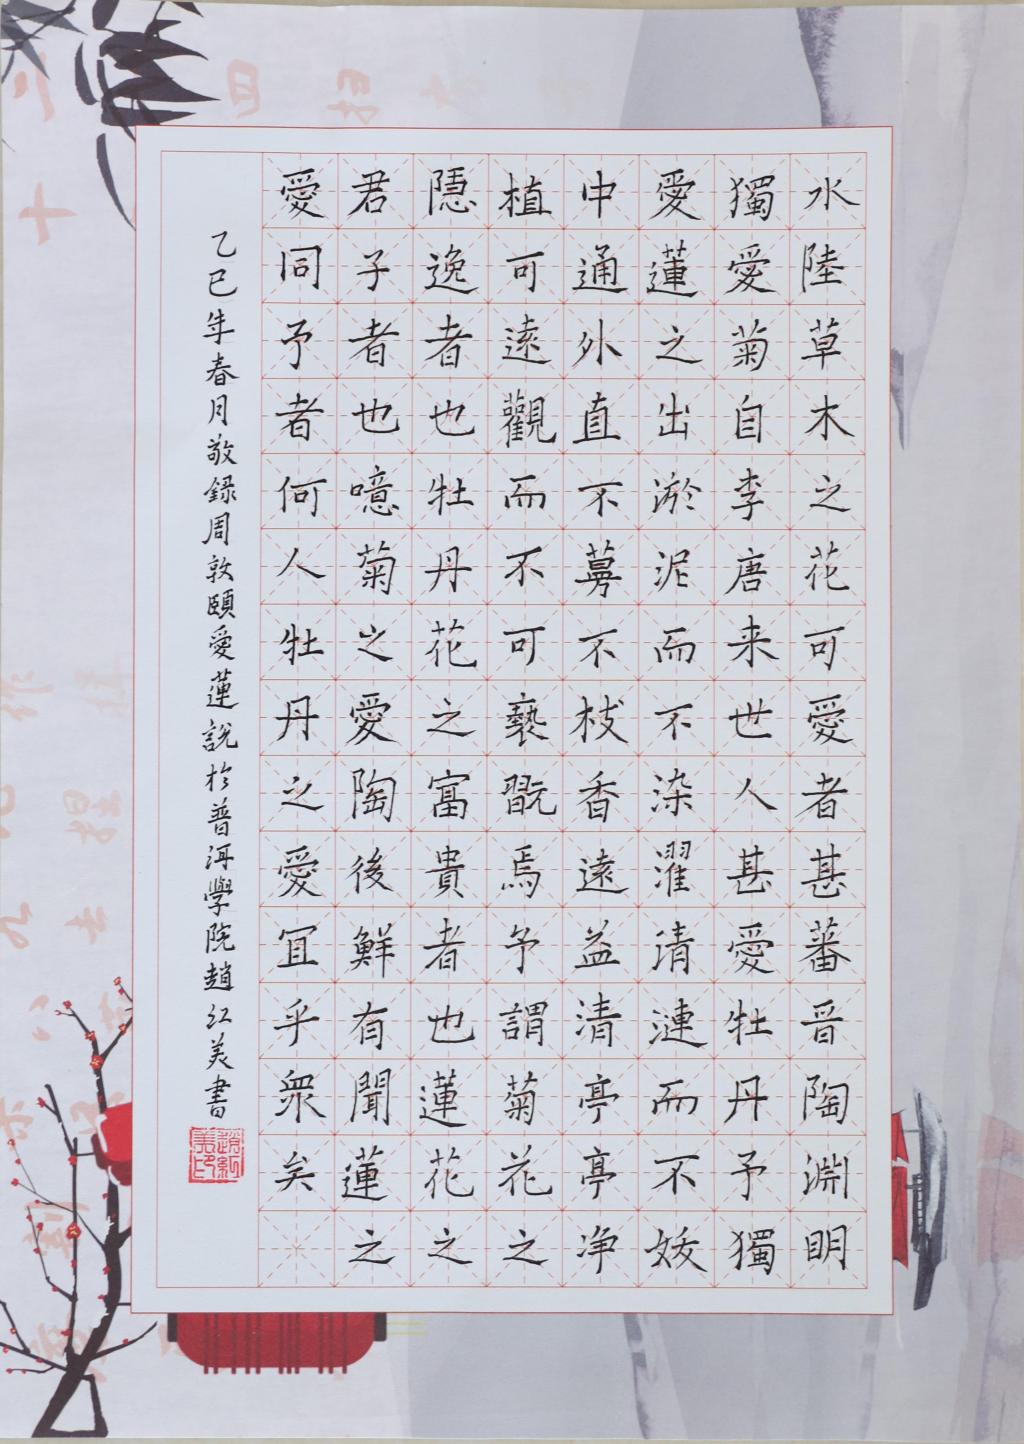 水陸草木之花可愛者甚蕃晉陶淵明
獨愛菊自李唐来世人甚愛牡丹予獨
愛蓮之出淤泥而不染濯清漣而不妖
中通外直不蔓不枝香遠益清亭亭净
植可遠觀而不可褻翫焉予謂菊花之
隱逸者也牡丹花之富貴者也蓮花之
君子者也噫菊之愛陶後鮮有聞蓮之
愛同予者何人牡丹之愛宜乎眾矣
乙巳年春月敬録周敦頤愛蓮說於普洱學院趙红美書